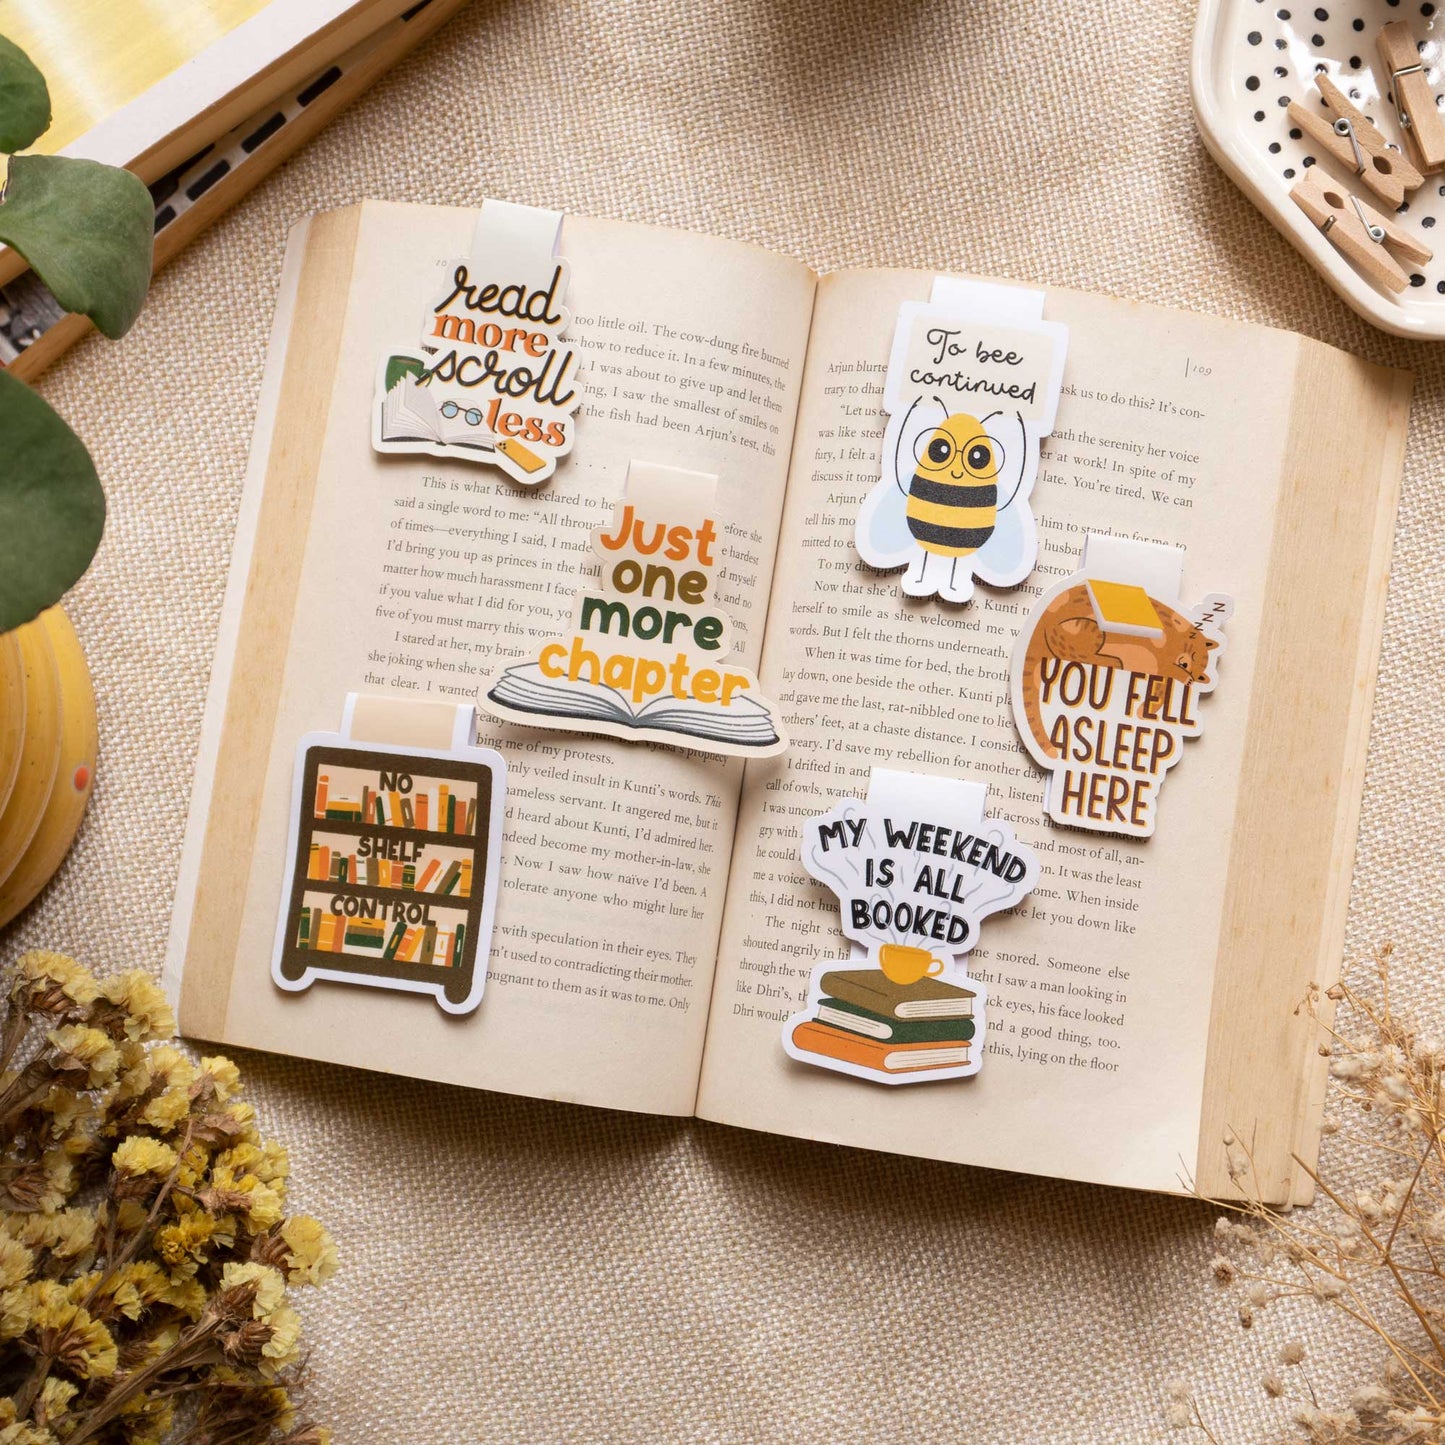 read
more
scroll
less
too little oil. The cow-dung fire burned
how to reduce it. In a few minutes, the
. I was about to give up and let them
ing, I saw the smallest of smiles on
f the fish had been Arjun's test, this
This is what Kunti declared to he
said a single word to me: "All throu
of times—everything I said, I made
I'd bring you up as princes in the hall
matter how much harassment I face
if you value what I did for you, yo
five of you must marry this wom
I stared at her, my brain
she joking when she sa
that clear. I wanted
efore she
e hardest
d myself
s, and no
ons,
All
Just
one
more
chapter
bing me of my protests.
inly veiled insult in Kunti's words. This
nameless servant. It angered me, but it
d heard about Kunti, I'd admired her.
ndeed become my mother-in-law, she
. Now I saw how naïve I'd been. A
tolerate anyone who might lure her
e with speculation in their eyes. They
n't used to contradicting their mother.
pugnant to them as it was to me. Only
NO
SHELF
CONTROL
109
To bee
continued
Arjun blurte
trary to dhar
"Let us e
was like stee
fury, I felt a
discuss it tome
Arjun d
tell his mo
mitted to ea
To my disappo
ask us to do this? It's con-
eath the serenity her voice
er at work! In spite of my
late. You're tired, We can
him to stand up for me, to
husban
destroy
Now that she'd had her say, Kunti t
herself to smile as she welcomed me w
words. But I felt the thorns underneath.
When it was time for bed, the broth
lay down, one beside the other. Kunti pla
and gave me the last, rat-nibbled one to lie
others' feet, at a chaste distance. I conside
weary. I'd save my rebellion for another day
I drifted in and
call of owls, watchin
I was uncomf
gry with
he could
me a voice w
this, I did not hus
YOU FELL
ASLEEP
HERE
Z
Z
Z
Z
ht, listeni
self across the small window.
—and most of all, an-
on. It was the least
ome. When inside
ave let you down like
MY WEEKEND
IS ALL
BOOKED
The night see
shouted angrily in hi
through the wi
like Dhri's, th
Dhri would
one snored. Someone else
ught I saw a man looking in
ick eyes, his face looked
nd a good thing, too.
this, lying on the floor